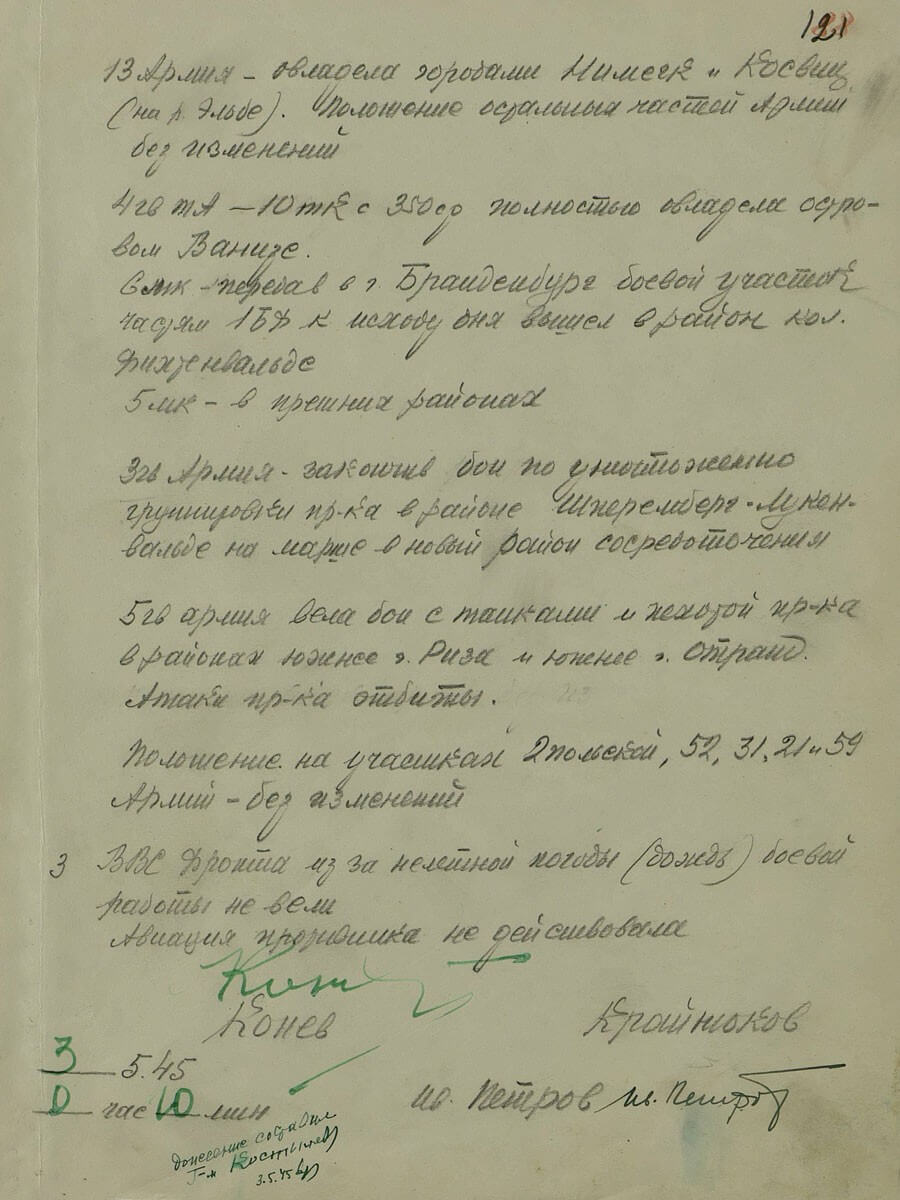 121
13 Армия – овладела городами Нимегк и Косвиг
(на р. Эльбе). Положение остальных частей Армии
без изменений
4 гв ТА – 10 тк с 350 сд полностью овладела остро-
вом Ванизе.
6 мк – передав в г. Бранденбург боевой участок
частям 1БФ к исходу дня вышел в район кол.
Фихтенвальде
5 мк – в прежних районах
3 гв Армия – закончив бои по уничтожению
группировки пр-ка в районе Шперемберг – Лукен-
вальде на марше в новый район сосредоточения
5 гв армия вела бои с танками и пехотой пр-ка
в районах южнее г. Риза и южнее г. Отранд.
Атаки пр-ка отбиты.
Положение на участках 2 польской, 52, 31, 21 и 59
Армий – без изменений
3 ВВС фронта из за нелетной погоды (дождь) боевой
работы не вели
Авиация противника не действовала
Конев Крайнюков
3 5.45
0 час 10 мин ив. Петров ив. Петров
донесение составил
Г-м Костылев
3.5.45